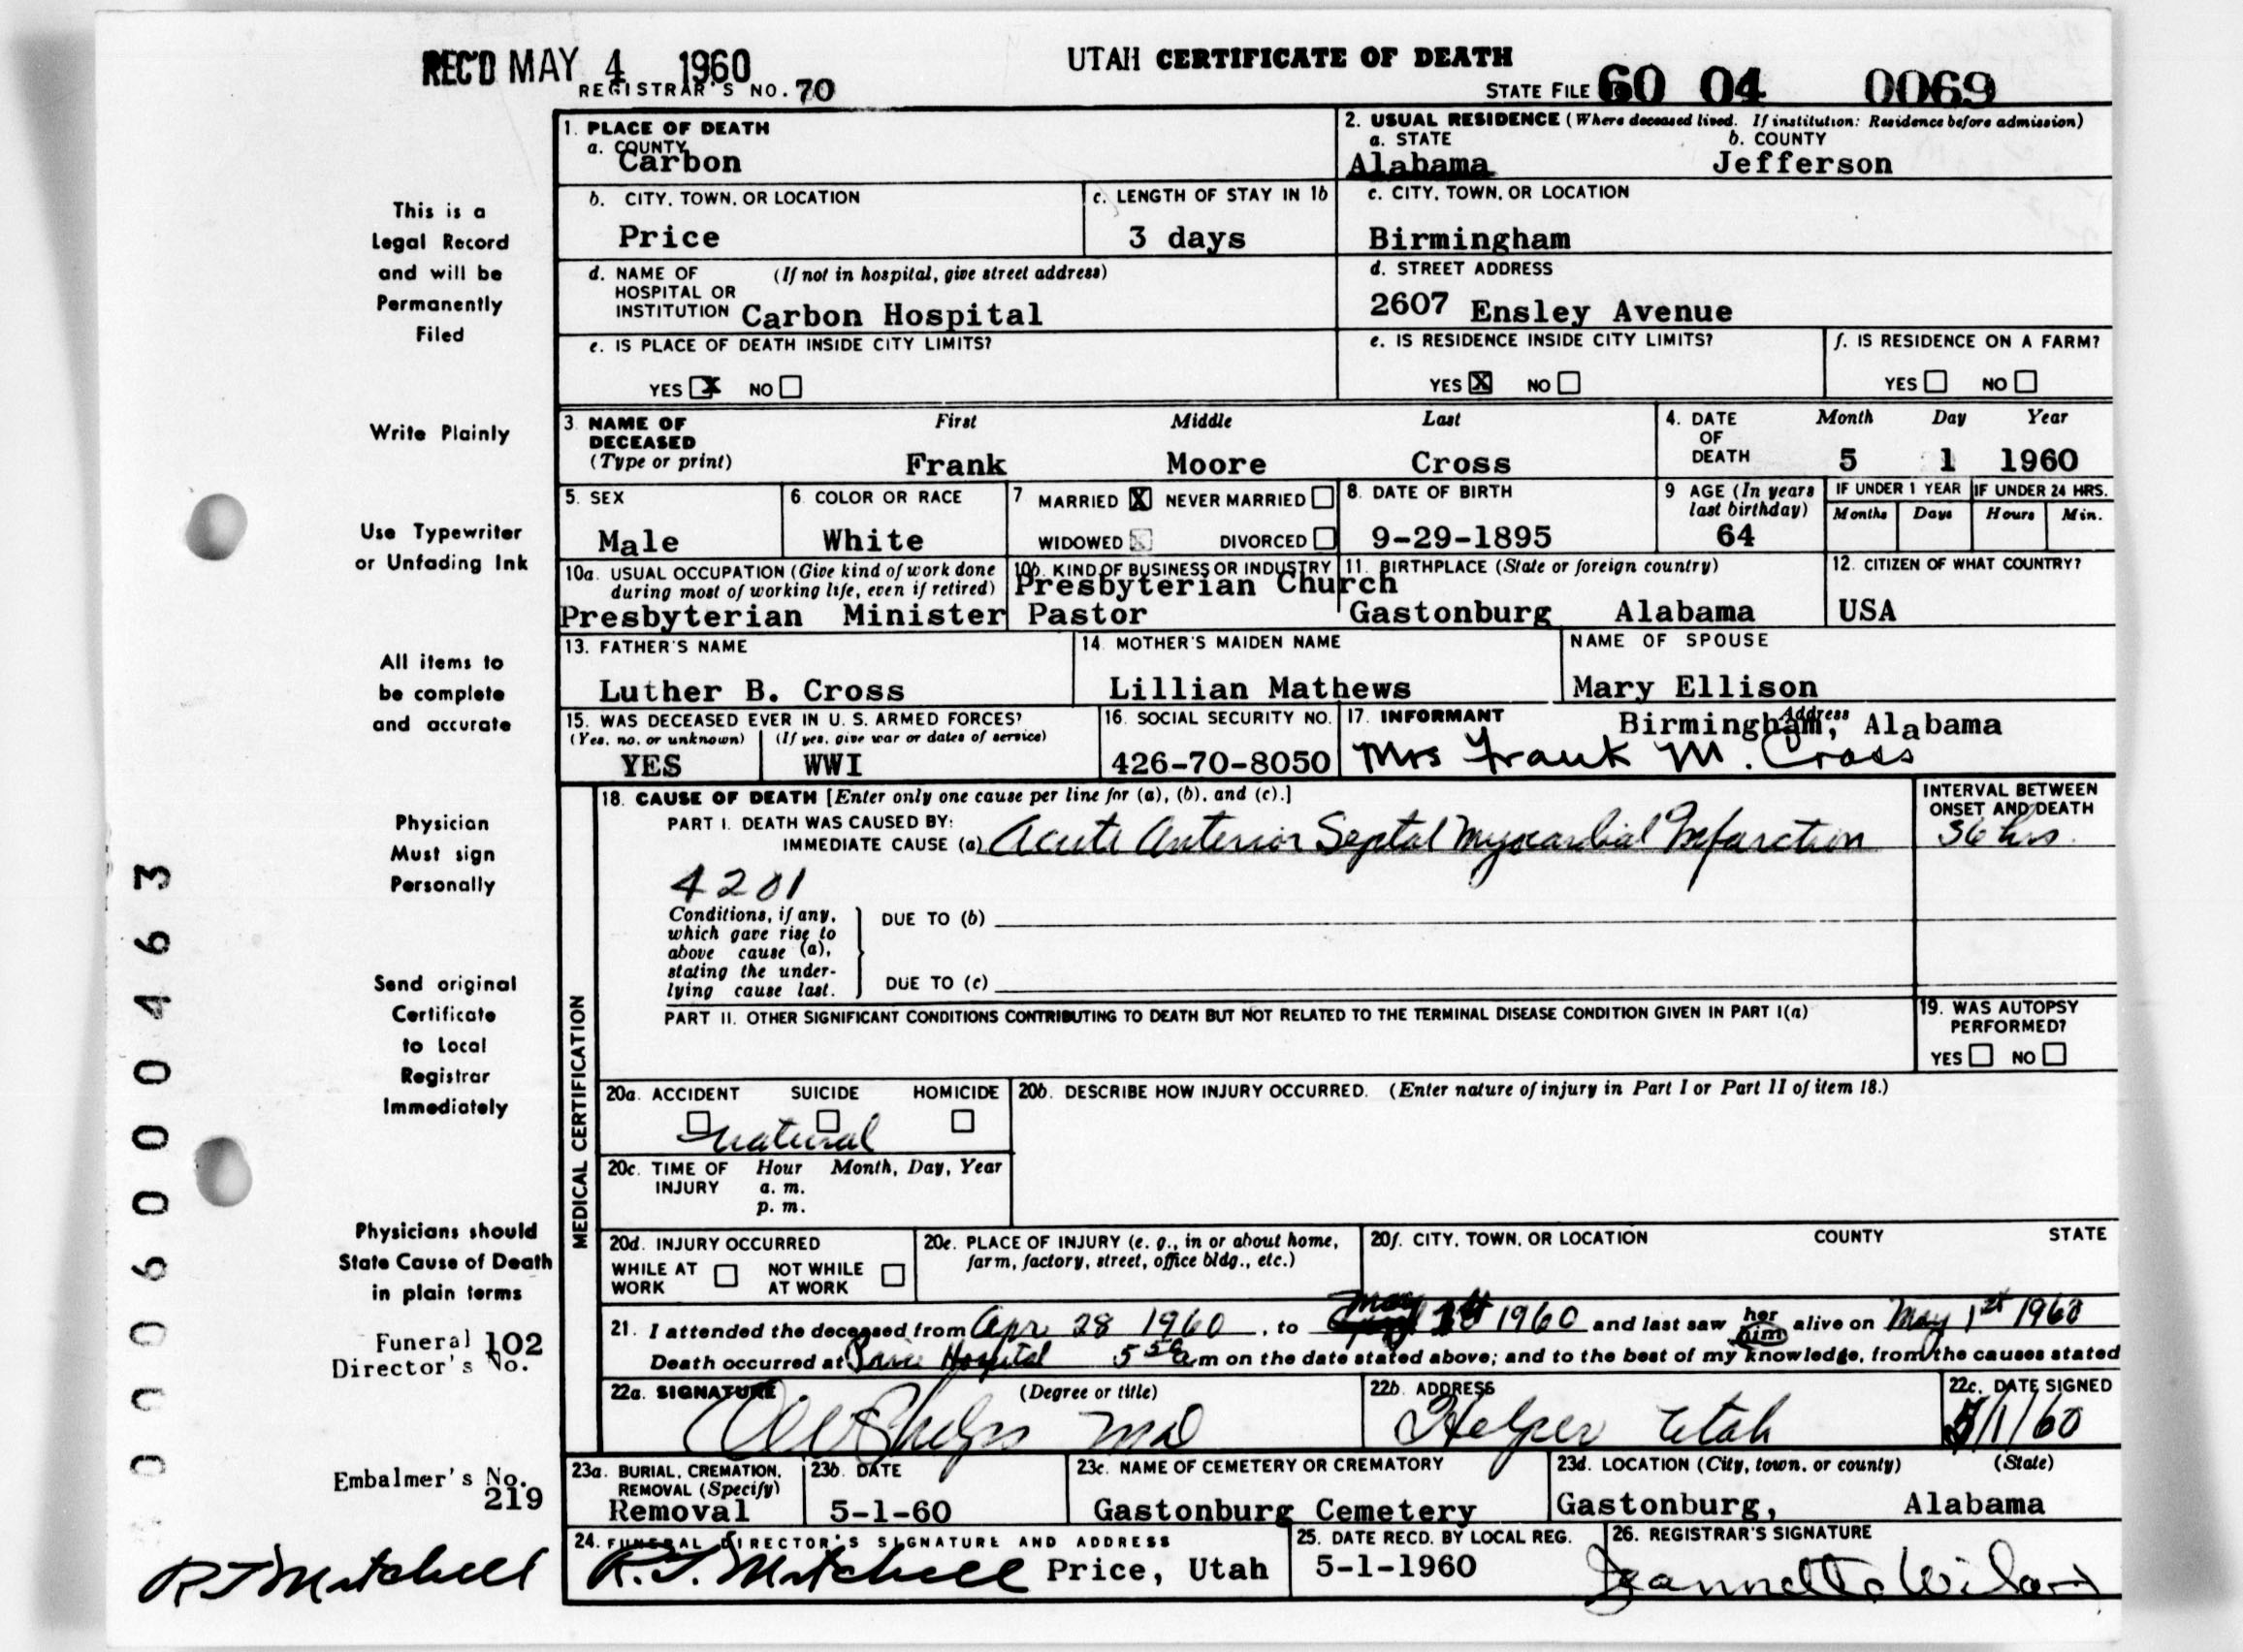 REC'D MAY 4 1960
UTAH CERTIFICATE OF DEATH
REGISTRAR'S NO. 70
STATE FILE 60 04 0069
1. PLACE OF DEATH
a. COUNTY
Carbon
2. USUAL RESIDENCE (Where deceased lived. If institution: Residence before admission)
a. STATE b. COUNTY
Alabama Jefferson
b. CITY, TOWN, OR LOCATION
Price
c. LENGTH OF STAY IN 1b
3 days
c. CITY, TOWN, OR LOCATION
Birmingham
d. NAME OF HOSPITAL OR INSTITUTION (If not in hospital, give street address)
Carbon Hospital
d. STREET ADDRESS
2607 Ensley Avenue
e. IS PLACE OF DEATH INSIDE CITY LIMITS?
YES X NO
e. IS RESIDENCE INSIDE CITY LIMITS?
YES X NO
f. IS RESIDENCE ON A FARM?
YES NO
3. NAME OF DECEASED (Type or print)
First Middle Last
Frank Moore Cross
4. DATE OF DEATH
Month Day Year
5 1 1960
5. SEX
Male
6. COLOR OR RACE
White
7 MARRIED X NEVER MARRIED
WIDOWED DIVORCED
8. DATE OF BIRTH
9-29-1895
9 AGE (In years last birthday)
64
IF UNDER 1 YEAR
Months Days
IF UNDER 24 HRS.
Hours Min.
10a. USUAL OCCUPATION (Give kind of work done during most of working life, even if retired)
Presbyterian Minister
10b. KIND OF BUSINESS OR INDUSTRY
Presbyterian Church
Pastor
11. BIRTHPLACE (State or foreign country)
Gastonburg Alabama
12. CITIZEN OF WHAT COUNTRY?
USA
13. FATHER'S NAME
Luther B. Cross
14. MOTHER'S MAIDEN NAME
Lillian Mathews
NAME OF SPOUSE
Mary Ellison
15. WAS DECEASED EVER IN U. S. ARMED FORCES?
(Yes, no, or unknown) (If yes, give war or dates of service)
YES WWI
16. SOCIAL SECURITY NO.
426-70-8050
17. INFORMANT Address
Birmingham, Alabama
Mrs Frank M. Cross
MEDICAL CERTIFICATION
18. CAUSE OF DEATH [Enter only one cause per line for (a), (b), and (c).]
PART I. DEATH WAS CAUSED BY:
IMMEDIATE CAUSE (a) Acute Anterior Septal Myocardial Infarction
INTERVAL BETWEEN ONSET AND DEATH
36 hrs.
4201
Conditions, if any, which gave rise to above cause (a), stating the underlying cause last.
DUE TO (b)
DUE TO (c)
PART II. OTHER SIGNIFICANT CONDITIONS CONTRIBUTING TO DEATH BUT NOT RELATED TO THE TERMINAL DISEASE CONDITION GIVEN IN PART I(a)
19. WAS AUTOPSY PERFORMED?
YES NO
20a. ACCIDENT SUICIDE HOMICIDE
natural
20b. DESCRIBE HOW INJURY OCCURRED. (Enter nature of injury in Part I or Part II of item 18.)
20c. TIME OF INJURY Hour Month, Day, Year
a. m.
p. m.
20d. INJURY OCCURRED
WHILE AT WORK NOT WHILE AT WORK
20e. PLACE OF INJURY (e. g., in or about home, farm, factory, street, office bldg., etc.)
20f. CITY, TOWN, OR LOCATION COUNTY STATE
21. I attended the deceased from Apr 28 1960, to May 1960 and last saw her him alive on May 1st 1960
Death occurred at Hospital 5 50 a.m on the date stated above; and to the best of my knowledge, from the causes stated
22a. SIGNATURE (Degree or title)
MD
22b. ADDRESS
Helper Utah
22c. DATE SIGNED
5/1/60
23a. BURIAL, CREMATION, REMOVAL (Specify)
Removal
23b. DATE
5-1-60
23c. NAME OF CEMETERY OR CREMATORY
Gastonburg Cemetery
23d. LOCATION (City, town, or county) (State)
Gastonburg, Alabama
24. FUNERAL DIRECTOR'S SIGNATURE AND ADDRESS
R.J. Mitchell Price, Utah
25. DATE RECD. BY LOCAL REG.
5-1-1960
26. REGISTRAR'S SIGNATURE
This is a
Legal Record
and will be
Permanently
Filed
Write Plainly
Use Typewriter
or Unfading Ink
All items to
be complete
and accurate
Physician
Must sign
Personally
Send original
Certificate
to Local
Registrar
Immediately
Physicians should
State Cause of Death
in plain terms
Funeral 102
Director's No.
Embalmer's No.
219
R J Mitchell
000600463